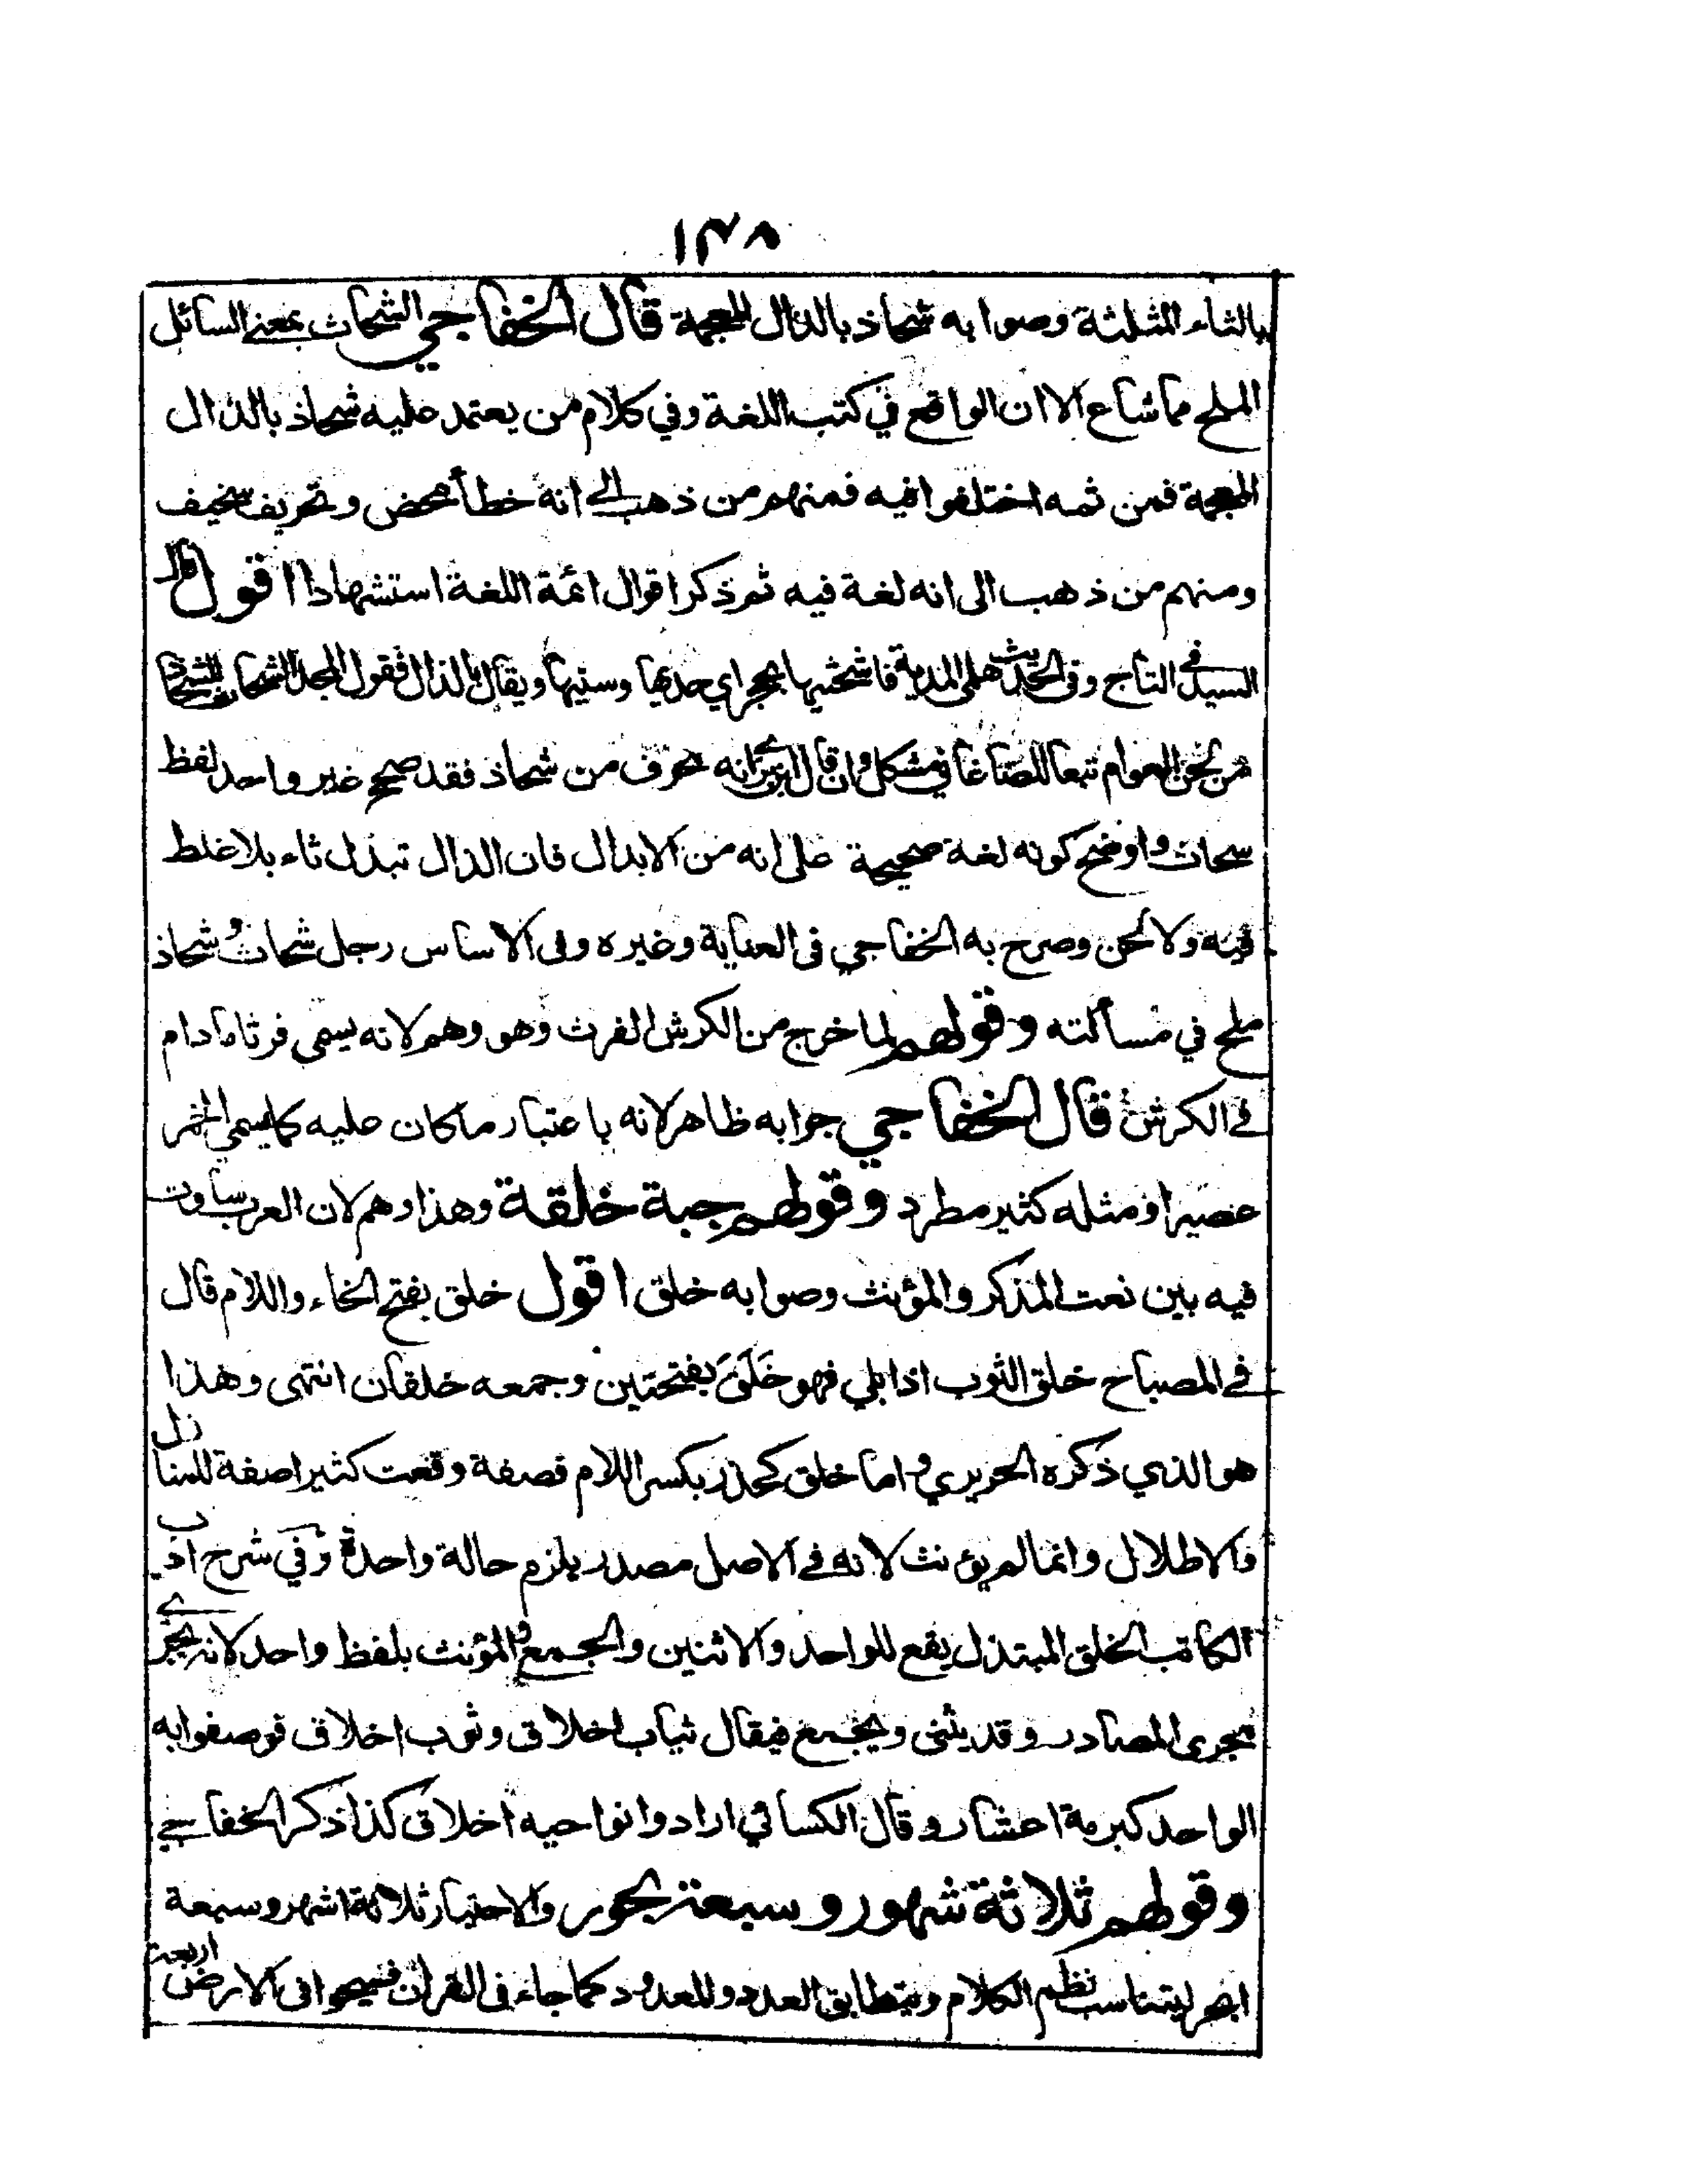 ١٣٨
بالثاء المثلثة وصوابه شحاذ بالذال المعجمة قال الخفاجي الشحاث بمعنى السائل
الملح مما شاع الا ان الواقع في كتب اللغة وفي كلام من يعتمد عليه شحاذ بالذال
المعجمة فمن ثمه اختلفوا فيه فمنهم من ذهب الى انه خطأ محض وتحريف سخيف
ومنهم من ذهب الى انه لغة فيه ثم ذكر اقوال ائمة اللغة استشهادا اقول قال
السيد في التاج وفي الحديث هلمي المدية فاشحثيها بحجر اي حديها وسنيها ويقال بالذال فقول المجد الشحاث للشحاذ
من لحن العوام تبعا للصاغاني مشكل وان قال ابن بري انه محرف من شحاذ فقد صحح غير واحد لفظ
سحاث واوضح كونه لغة صحيحة على انه من الابدال فان الذال تبدل ثاء بلا غلط
فيه ولا لحن وصرح به الخفاجي فى العناية وغيره وفى الاساس رجل شحاث وشحاذ
ملح في مسألته وقولهم لما خرج من الكرش الفرث وهو وهم لانه يسمى فرثا مادام
فى الكرش قال الخفاجي جوابه ظاهر لانه باعتبار ما كان عليه كما يسمى الخمر
عصيرا ومثله كثير مطرد وقولهم جبة خلقة وهذا وهم لان العرب ساوت
فيه بين نعت المذكر والمؤنث وصوابه خلق اقول خلق بفتح الخاء واللام قال
فى المصباح خلق الثوب اذا بلي فهو خَلَقَ بفتحتين وجمعه خلقان انتهى وهذا
هو الذي ذكره الحريري واما خلق كحذر بكسر اللام فصفة وقعت كثيرا صفة للمنازل
والاطلال وانما لم يؤنث لانه فى الاصل مصدر يلزم حالة واحدة وفي شرح ادب
الكاتب الخلق المبتذل يقع للواحد والاثنين والجمع والمؤنث بلفظ واحد لانه يجرى
مجرى المصادر وقد يثنى ويجمع فيقال ثياب اخلاق وثوب اخلاق فوصفوا به
الواحد كبرمة اعشار وقال الكسائي ارادوا نواحيه اخلاق كذا ذكر الخفاجي
وقولهم ثلاثة شهور وسبعة بحور والاختيار ثلاثة اشهر وسبعة
ابحر ليتناسب نظم الكلام ويتطابق العدد والمعدود كما جاء فى القران فسيحوا فى الارض اربعة